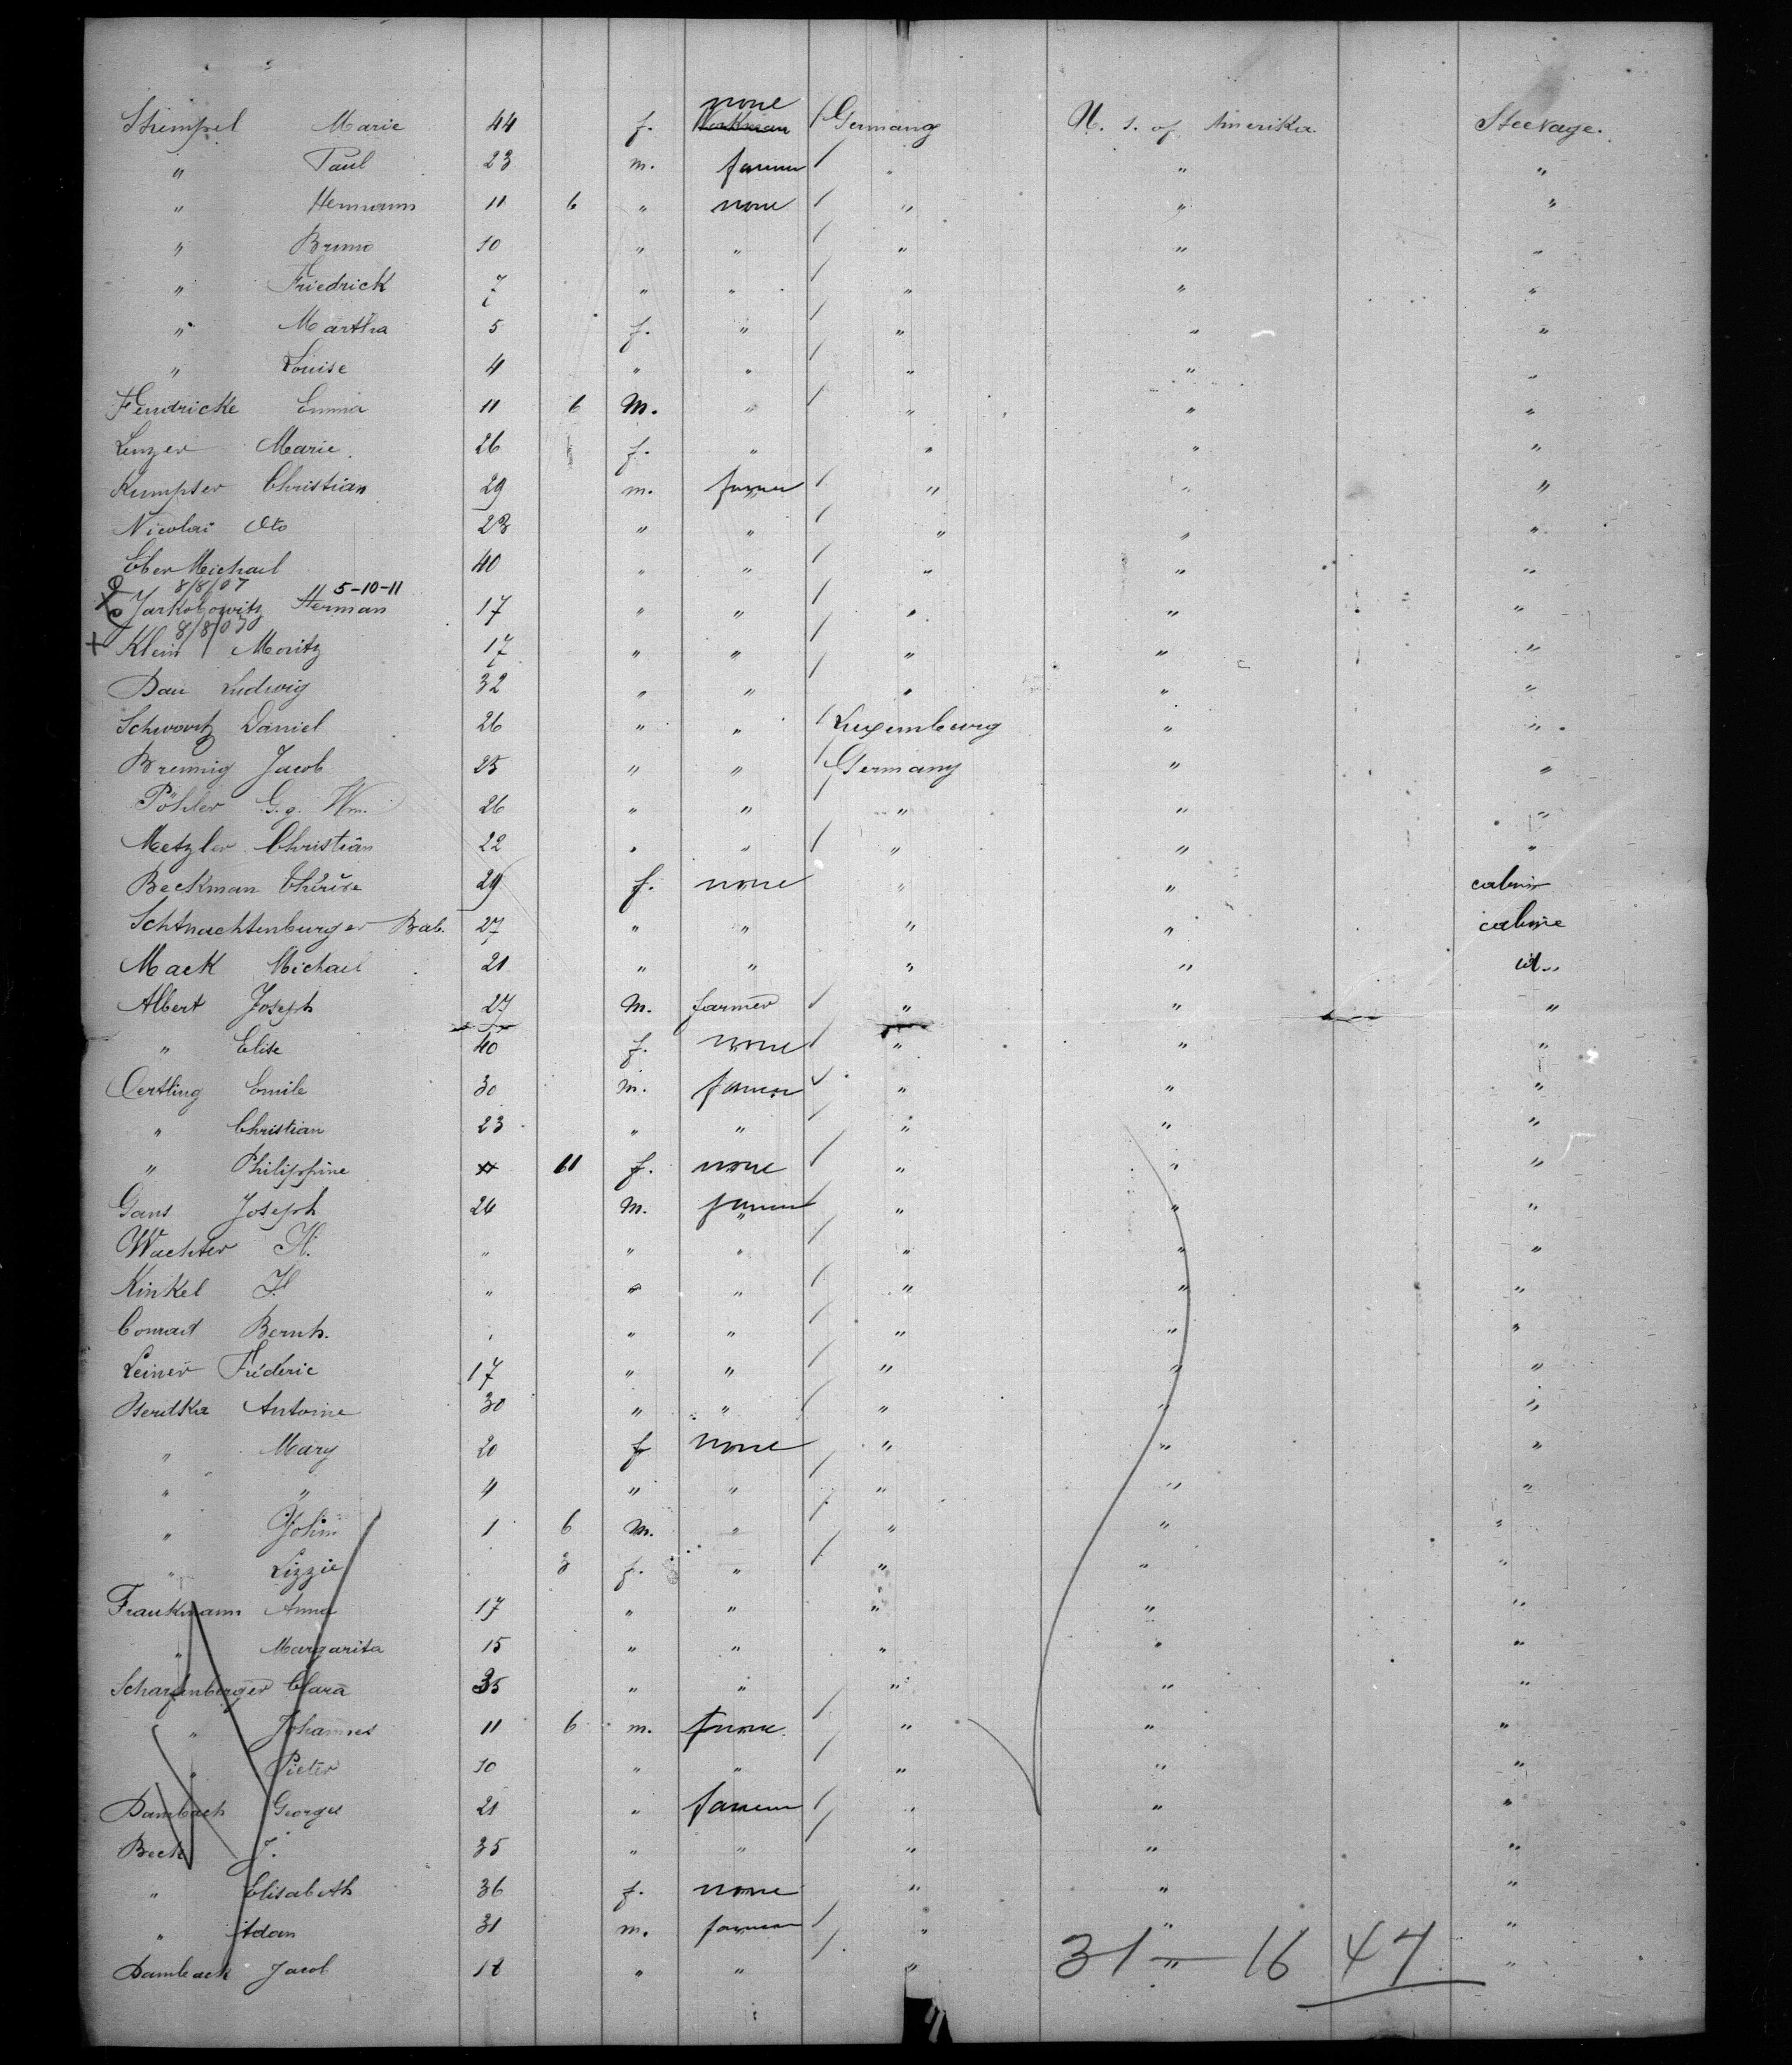 Stempel Marie 44 f. none Workman / Germany U. S. of Amerika. Steerage.
" Paul 23 m. farmer / " " "
" Hermann 11 6 " none / " " "
" Bruno 10 " " / " " "
" Friedrick 7 " " / " " "
" Martha 5 f. " / " " "
" Louise 4 " " / " " "
Hendricke Emma 11 6 M. " / " " "
Lenzer Marie. 26 f. " " " "
Kumpter Christian 29 m. farmer / " " "
Nicolai Oto 23 " " / " " "
Eber Michael 40 " " / " " "
8/8/07 5-10-11
Jarkobowitz Herman 17 " " / " " "
8/8/03
x Klein Moritz 17 " " / " " "
Bau Ludwig 32 " " / " " "
Schwartz Daniel 26 " " / Luxemburg " "
Brennig Jacob 25 " " / Germany " "
Pöhler G. g. Wm. 26 " " / " " "
Metzler Christian 22 " " / " " "
Beckman Thérèse 29 f. none " " cabin
Schtnachtenburger Bab. 27 " " " " cabine
Mack Michael 21 " " " " id..
Albert Joseph 27 M. farmer / " " "
" Elise 40 f. none / " " "
Oertling Emile 30 m. farmer " " "
" Christian 23 " " / " " "
" Philippine 11 f. none / " " "
Gans Joseph 26 M. farmer / " " "
Wachter H. " " " / " " "
Kinkel J. " " " / " " "
Conrad Bernh. " " " / " " "
Leiner Fréderic 17 " " / " " "
Antoine 30 " " / " " "
" Mary 20 f none / " " "
" " 4 " " / " " "
" John 1 6 M. " / " " "
" Lizzie 3 f. " / " " "
Frankmann Anna 17 " " " " "
" Margarita 15 " " " " "
Scharfenberger Clara 35 " " " " "
" Johannes 11 6 m. none. / " " "
" Pieter 10 " " / " " "
Dambach George 21 " farmer / " " "
Beck J. 35 " " / " " "
" Elisabeth 36 f. none " " "
" Adam 31 m. farmer / " " "
Damback Jacob 18 " " / " " "
31 — 16 47